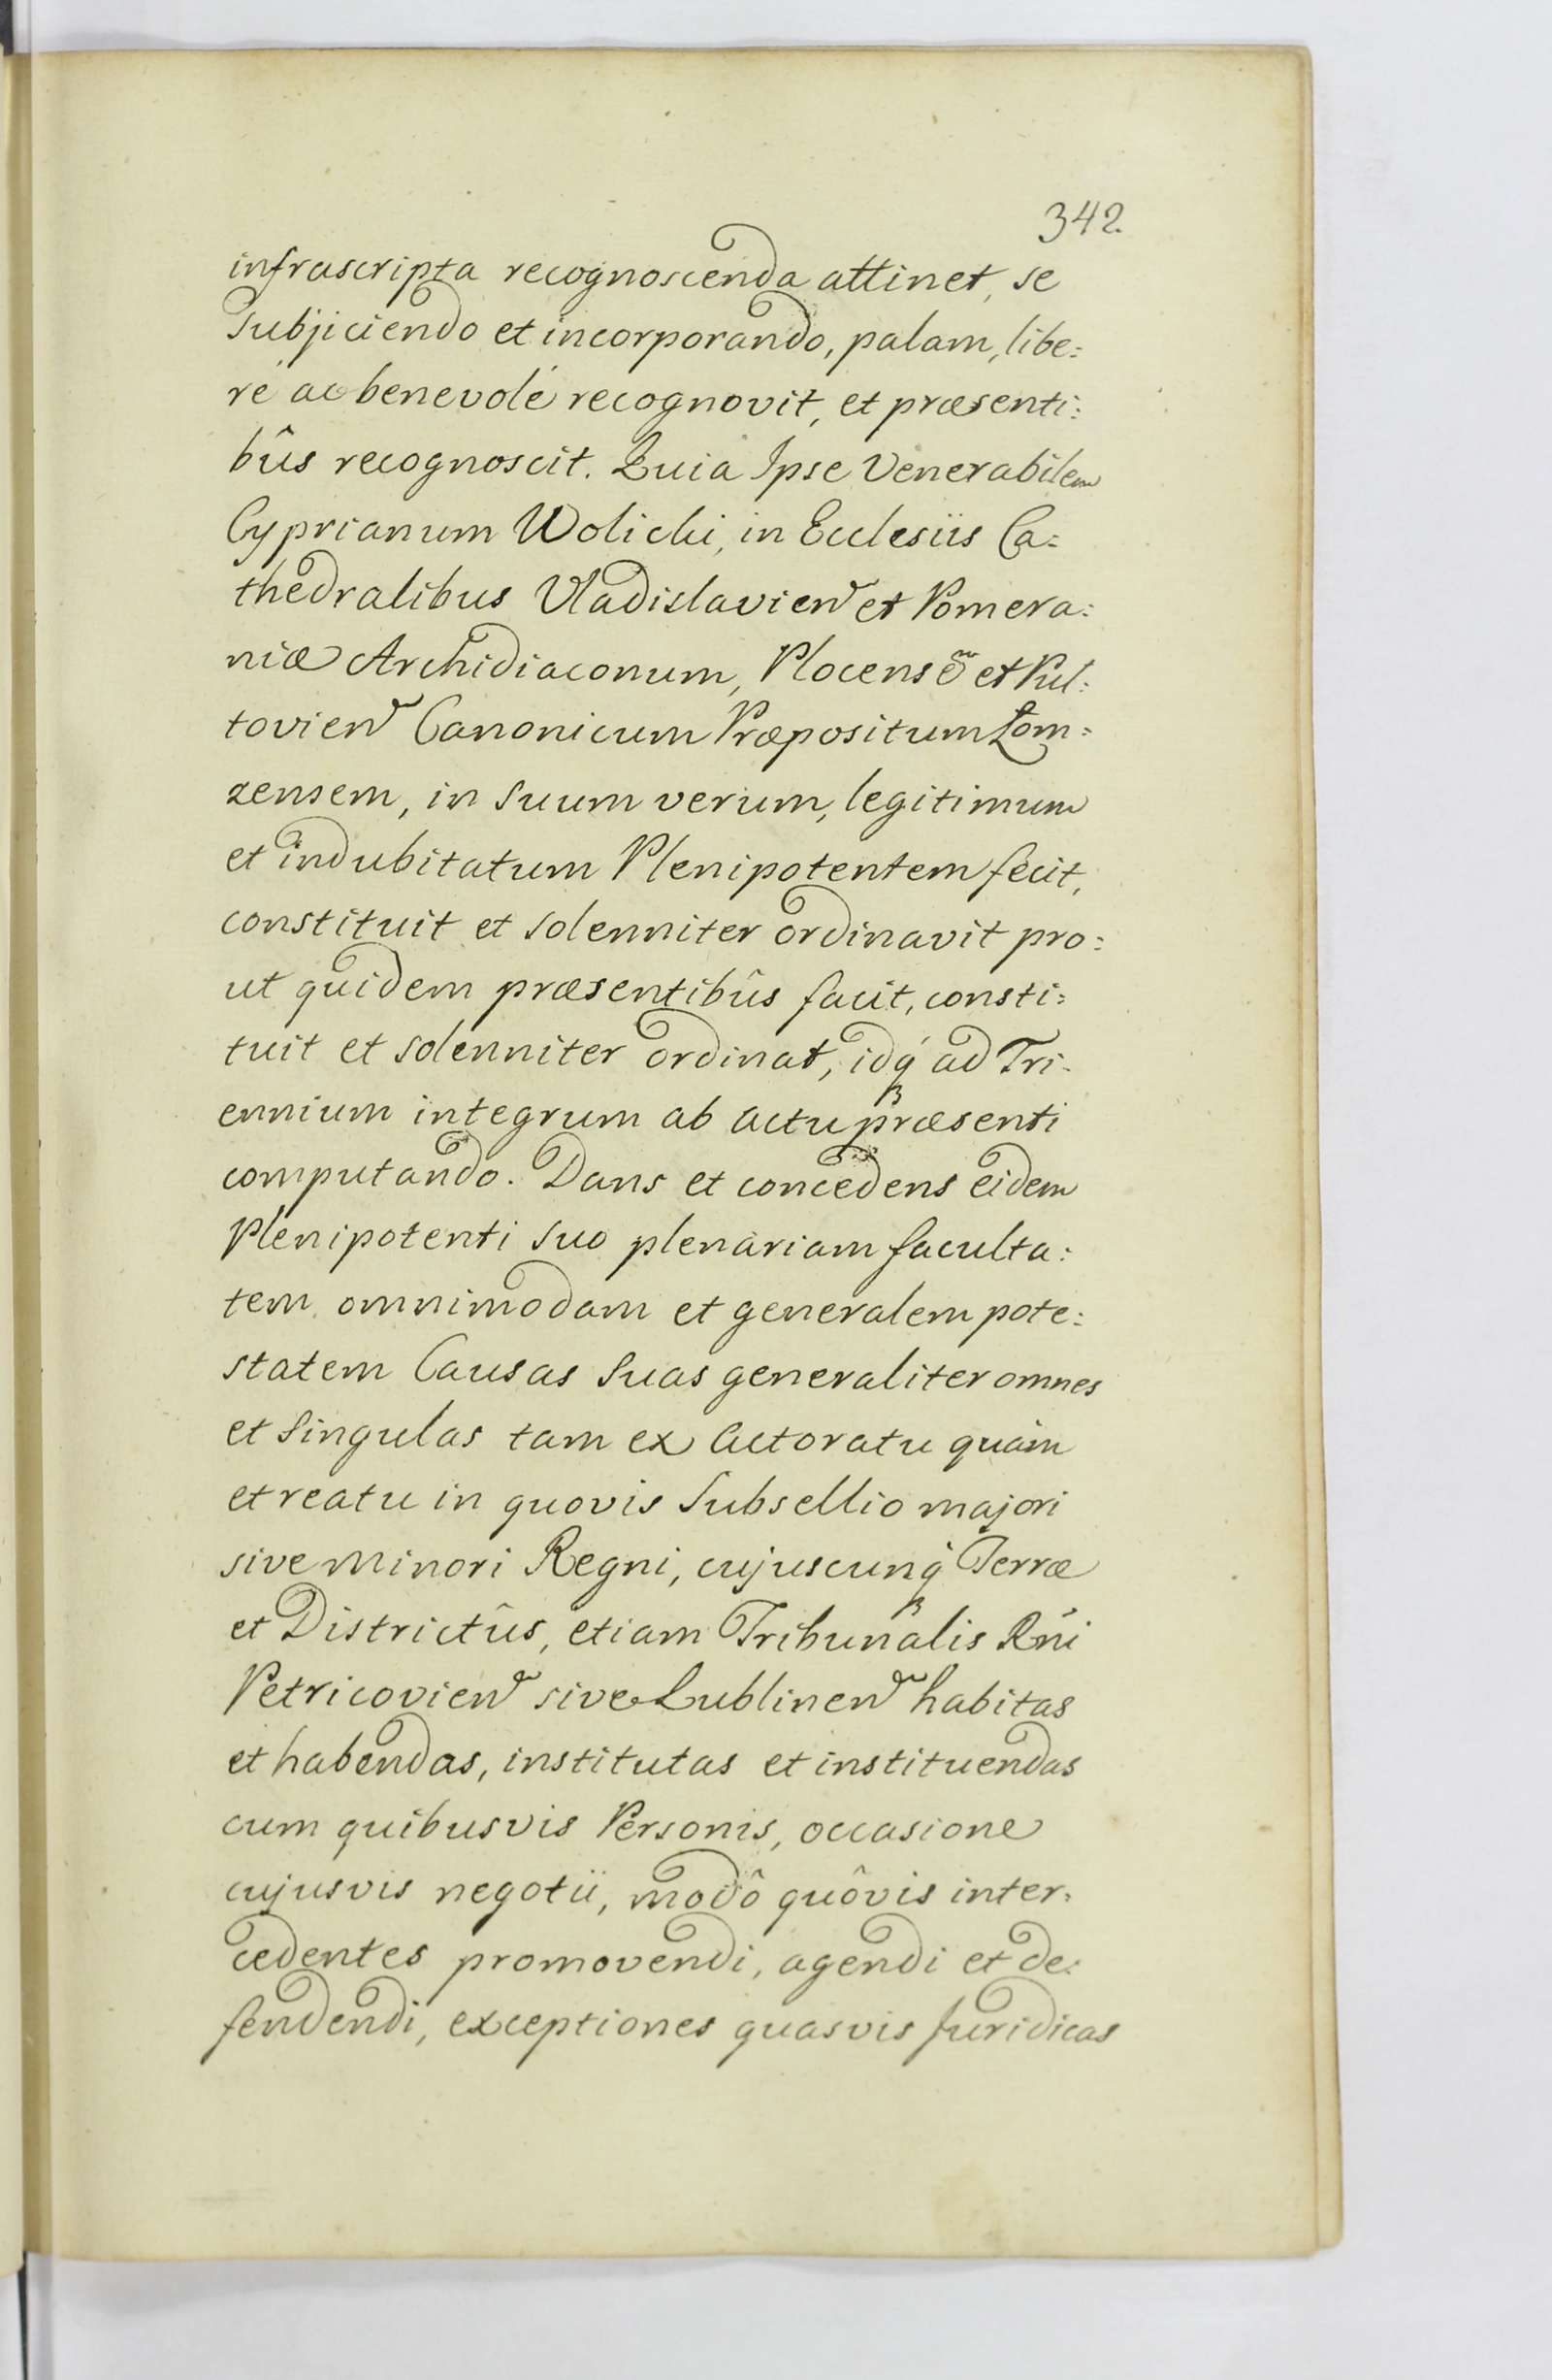 342.
infrascripta recognoscenda attinet, se
subjiciendo et incorporando, palam, libe:
ré ac benevolé recognovit, et præsenti:
bûs recognoscit. Quia Ipse Venerabilem
Cyprianum Wolicki, in Ecclesiis Ca:
thedralibus Vladislavien et Pomera:
niæ Archidiaconum, Plocense et Pul:
tovien Canonicum Præpositum Łom:
zensem, in suum verum, legitimum
et indubitatum Plenipotentem fecit,
constituit et solenniter ordinavit pro:
ut quidem præsentibûs facit, consti:
tuit et solenniter ordinat, idq́ ad Tri:
ennium integrum ab actu præsenti
computando. Dans et concedens eidem
Plenipotenti suo plenariam faculta:
tem omnimodam et generalem pote:
statem Causas suas generaliter omnes
et singulas tam ex Actoratu quàm
et reatu in quovis Subsellio majori
sive minori Regni, cujuscunq́ Terræ
et Districtûs, etiam Tribunalis Rńi
Petricovien sive Lublinen habitas
et habendas, institutas et instituendas
cum quibusvis Personis, occasione
cujusvis negotii, modô quôvis inter:
cedentes promovendi, agendi et de:
fendendi, exceptiones quasvis Juridicas